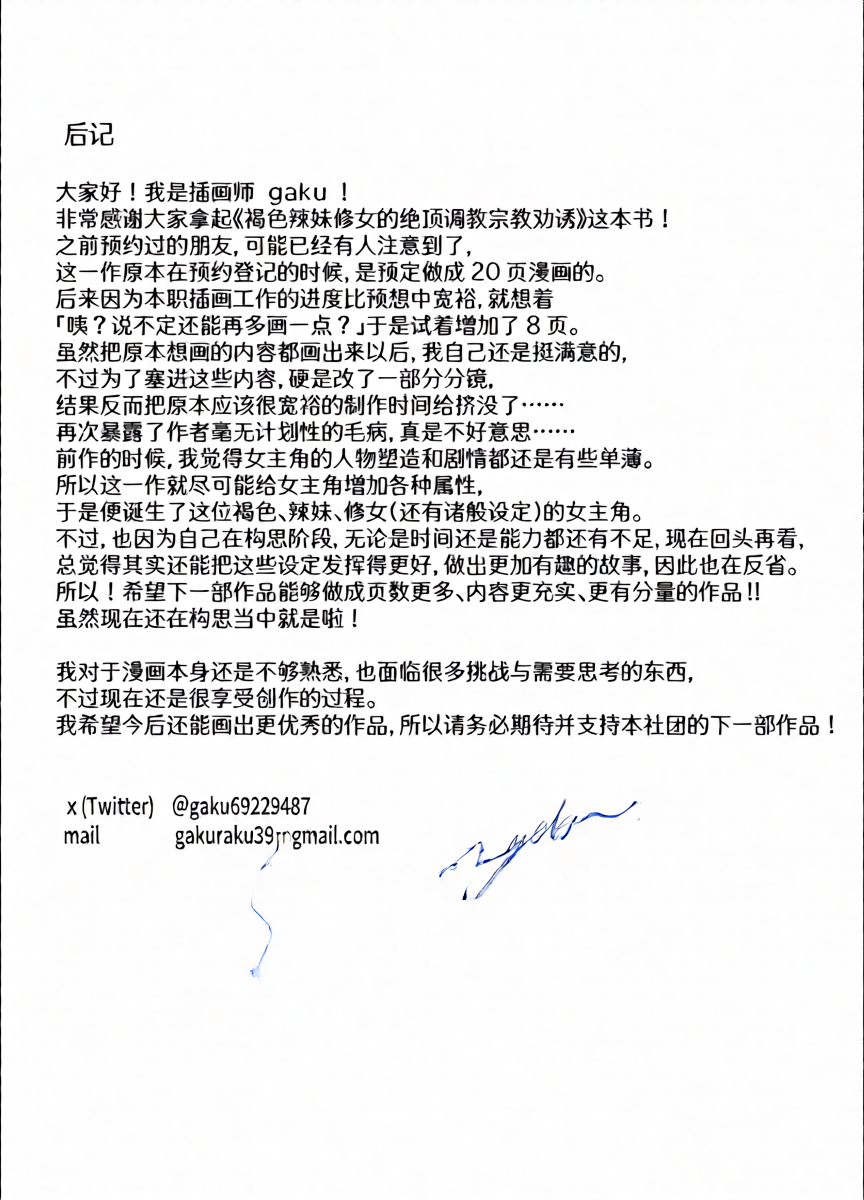 后记
大家好！我是插画师 gaku ！
非常感谢大家拿起《褐色辣妹修女的绝顶调教宗教劝诱》这本书！
之前预约过的朋友，可能已经有人注意到了，
这一作原本在预约登记的时候，是预定做成 20 页漫画的。
后来因为本职插画工作的进度比预想中宽裕，就想着
「咦？说不定还能再多画一点？」于是试着增加了 8 页。
虽然把原本想画的内容都画出来以后，我自己还是挺满意的，
不过为了塞进这些内容，硬是改了一部分分镜，
结果反而把原本应该很宽裕的制作时间给挤没了……
再次暴露了作者毫无计划性的毛病，真是不好意思……
前作的时候，我觉得女主角的人物塑造和剧情都还是有些单薄。
所以这一作就尽可能给女主角增加各种属性，
于是便诞生了这位褐色、辣妹、修女（还有诸般设定）的女主角。
不过，也因为自己在构思阶段，无论是时间还是能力都还有不足，现在回头再看，
总觉得其实还能把这些设定发挥得更好，做出更加有趣的故事，因此也在反省。
所以！希望下一部作品能够做成页数更多、内容更充实、更有分量的作品!!
虽然现在还在构思当中就是啦！
我对于漫画本身还是不够熟悉，也面临很多挑战与需要思考的东西，
不过现在还是很享受创作的过程。
我希望今后还能画出更优秀的作品，所以请务必期待并支持本社团的下一部作品！
x (Twitter) @gaku69229487
mail